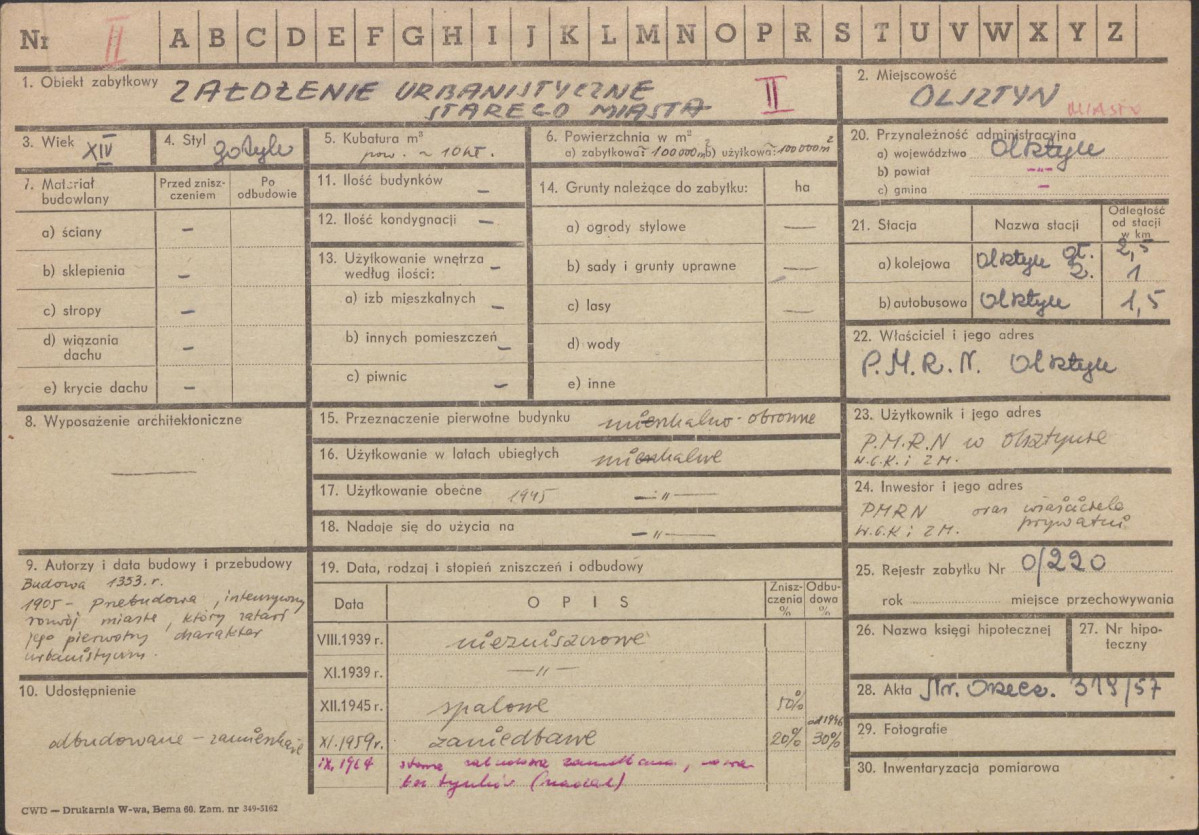 Nr II A B C D E F G H I J K L M N O P R S T U V W X Y Z
1. Obiekt zabytkowy ZAŁOŻENIE URBANISTYCZNE
STAREGO MIASTA II
2. Miejscowość
OLSZTYN MIASTO
3. Wiek XIV
4. Styl gotyk
5. Kubatura m³
pow. ~ 10 ha.
6. Powierzchnia w m²
a) zabytkowa: 100000 m² b) użytkowa: 100000 m²
20. Przynależność administracyjna
a) województwo Olsztyn
b) powiat -"-
c) gmina -
7. Materiał budowlany
Przed zniszczeniem
Po odbudowie
a) ściany -
b) sklepienia -
c) stropy -
d) wiązania dachu -
e) krycie dachu -
11. Ilość budynków -
12. Ilość kondygnacji -
13. Użytkowanie wnętrza według ilości: -
a) izb mieszkalnych -
b) innych pomieszczeń -
c) piwnic -
14. Grunty należące do zabytku: ha
a) ogrody stylowe —
b) sady i grunty uprawne —
c) lasy —
d) wody
e) inne
21. Stacja Nazwa stacji Odległość od stacji w km
a) kolejowa Olsztyn Gł. 2,5
Z. 1
b) autobusowa Olsztyn 1,5
22. Właściciel i jego adres
P.M.R.N. Olsztyn
8. Wyposażenie architektoniczne
—
15. Przeznaczenie pierwotne budynku mieszkalno-obronne
16. Użytkowanie w latach ubiegłych mieszkalne
17. Użytkowanie obecne 1945 -"-
18. Nadaje się do użycia na -"-
23. Użytkownik i jego adres
P.M.R.N w Olsztynie
W.G.K. i Z M.
24. Inwestor i jego adres
PMRN oraz właściciele
W.G.K. i Z M. prywatni
9. Autorzy i data budowy i przebudowy
Budowa 1353. r.
1905 - Przebudowa, intensywny
rozwój miasta, który zatarł
jego pierwotny charakter
urbanistyczny.
19. Data, rodzaj i stopień zniszczeń i odbudowy
Data OPIS Zniszczenia % Odbudowa %
VIII.1939 r. niezniszczone
XI.1939 r. -"-
XII.1945 r. spalone 50%
XI.1959 r. zaniedbane 20% od 1946 30%
IX.1964 stara zabudowa zaniedbana, nowa
bez tynków (nadal)
25. Rejestr zabytku Nr O/220
rok miejsce przechowywania
26. Nazwa księgi hipotecznej
27. Nr hipoteczny
10. Udostępnienie
odbudowane - zamieszkałe
28. Akta Nr. Orzecz. 319/57
29. Fotografie
30. Inwentaryzacja pomiarowa
CWD — Drukarnia W-wa, Bema 60. Zam. nr 349-5162